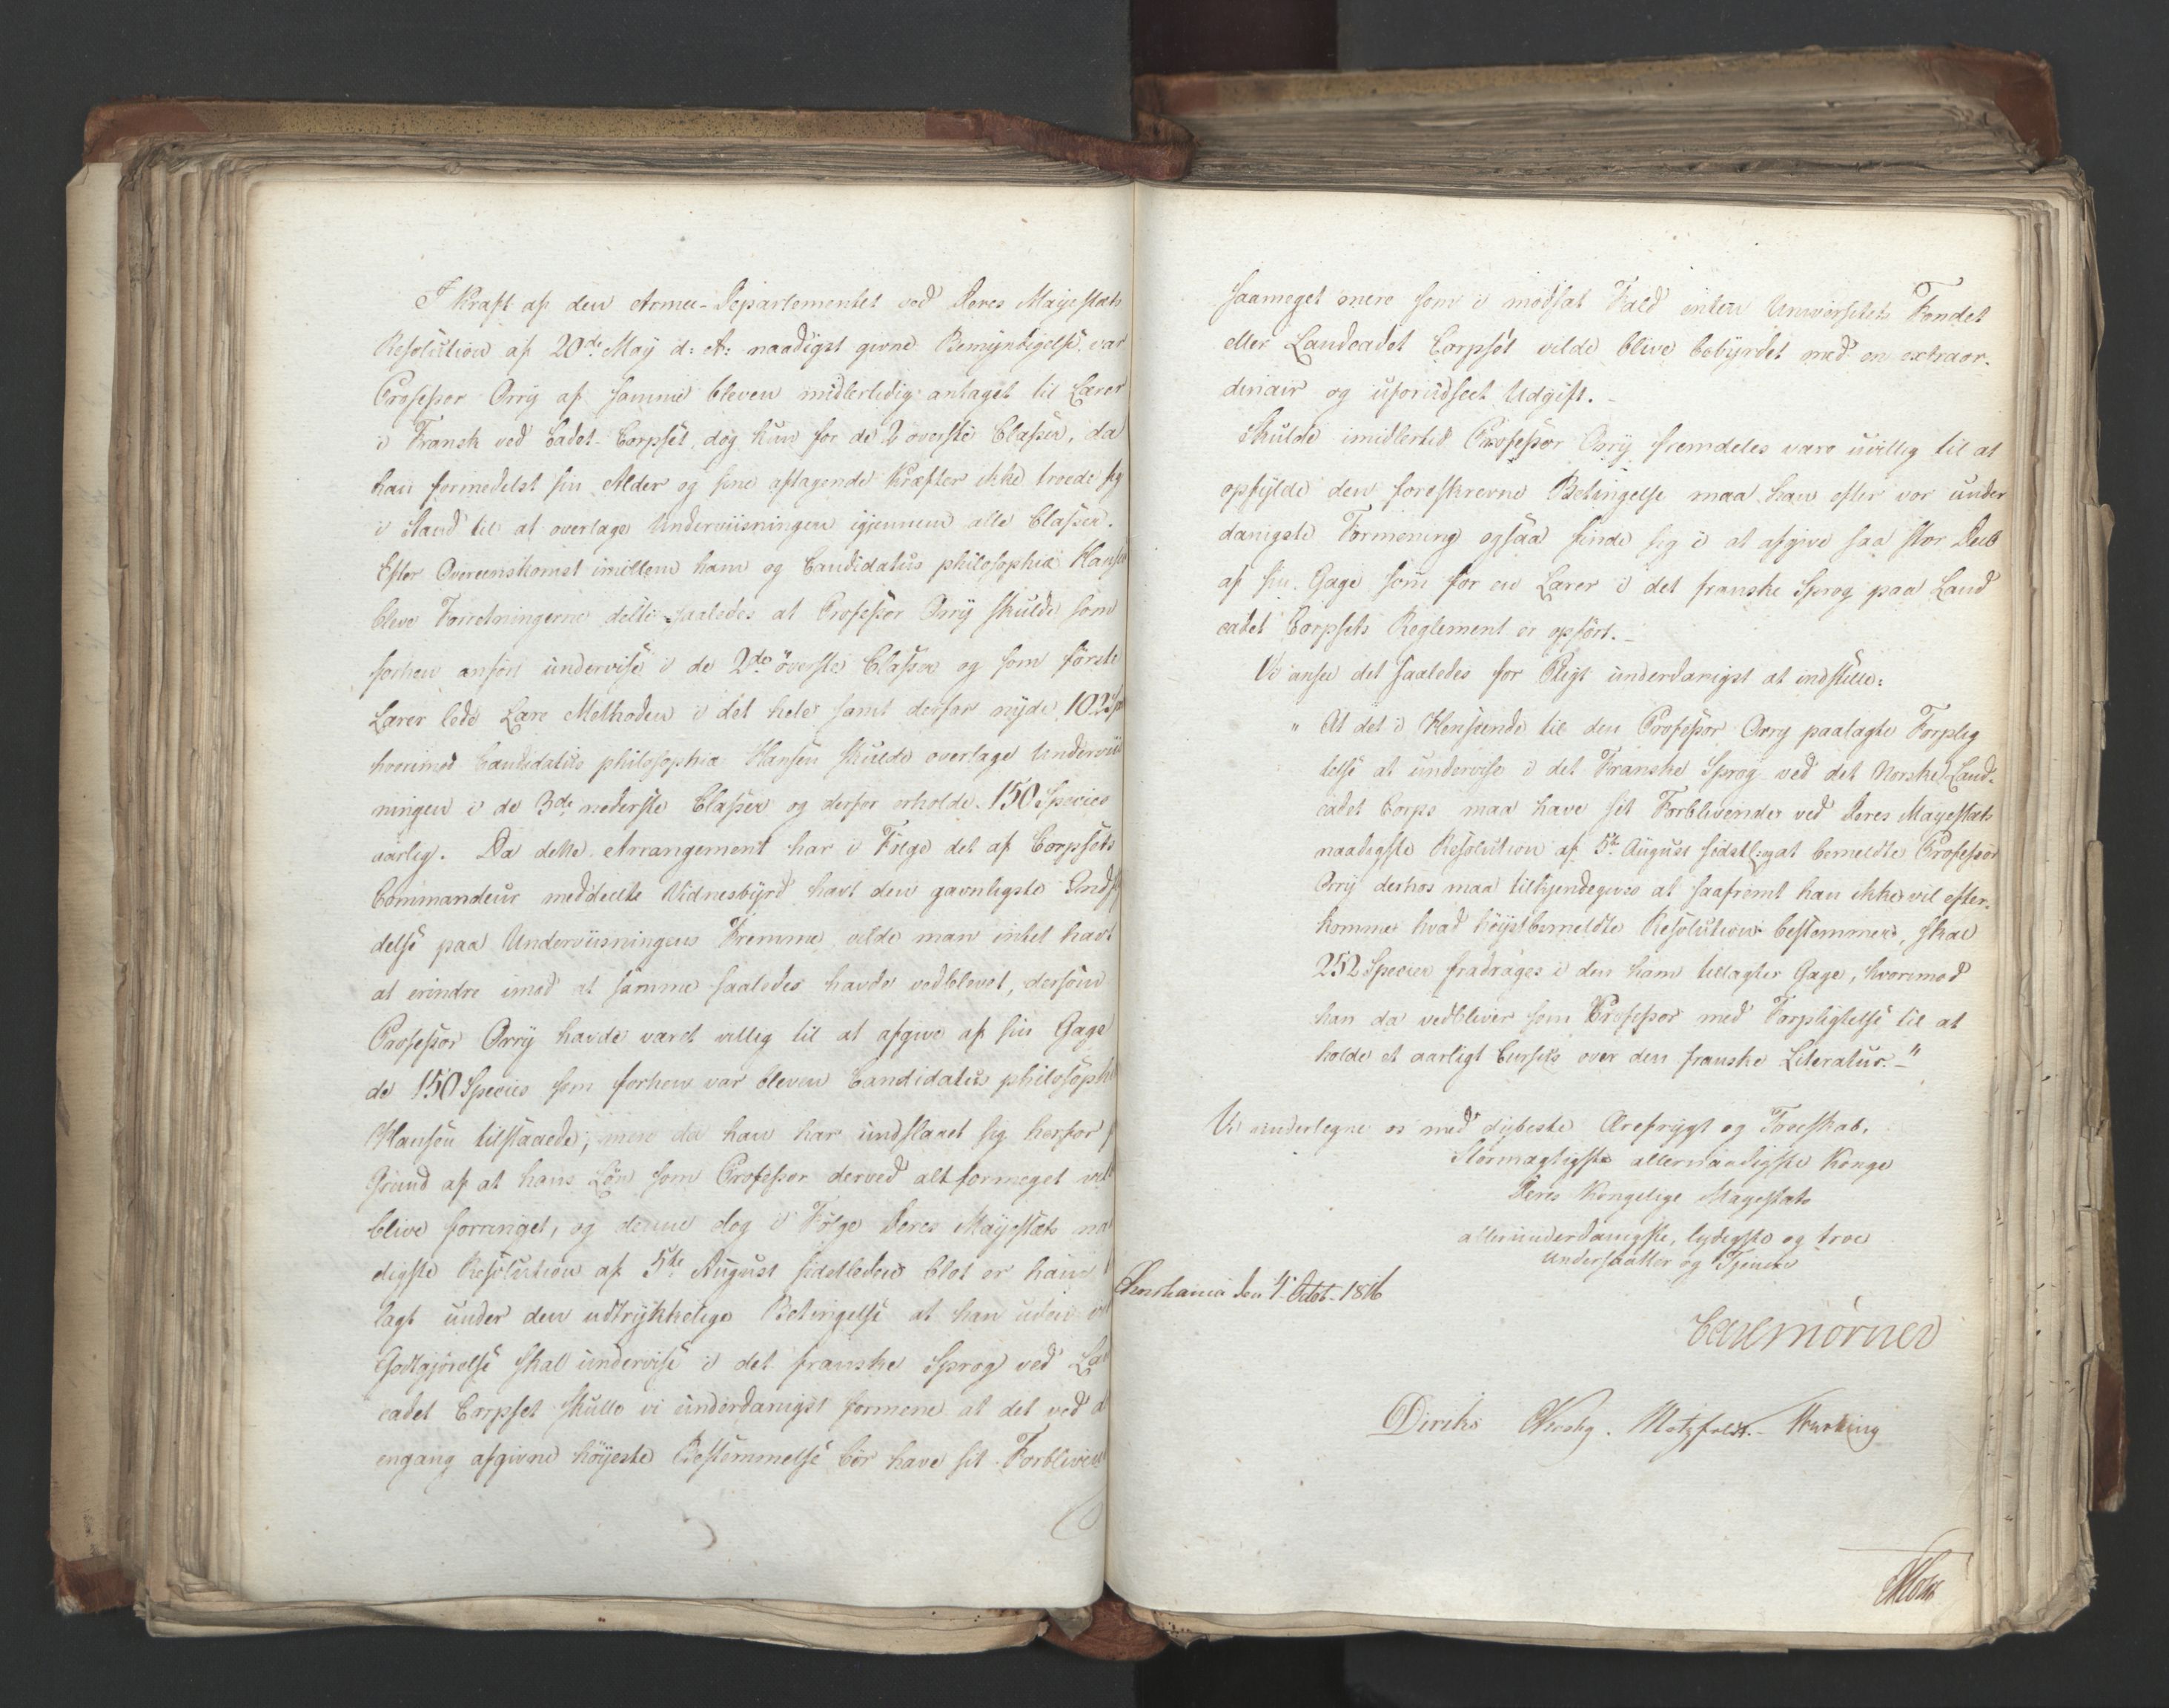 I Kraft af den Armee-Departementet ved Deres Mayestæts
Resolution af 20de May d: A: naadigst givne Bemyndigelse var
Professor Orry af samme bleven midlertidig antaget til Lærer
i Fransk ved Cadet-Corpset, dog kun for de 2 øverste Classer, da
han formedelst sin Alder og sine aftagende Kræfter ikke troede sig
i Stand til at overtage Underviisningen igjennem alle Classer.
Efter Overeenskomst imellem ham og Candidatus philosophiæ Hansen
bleve Forretningerne deelte saaledes at Professor Orry skulde som
forhen anført undervise i de 2de øverste Classer og som første
Lærer lede Lære Methoden i det hele samt derfor nyde 102 Sp
hvorimod Candidatus philosophiæ Hansen skulde overtage Underviis
ningen i de 3de nederste Classer og derfor erholde 150 Species
aarlig. Da dette Arrangement har i Følge det af Corpsets
Commandeur meddeelte Vidnesbyrd havt den gavnligste Indfly
delse paa Underviisningens Fremme vilde man intet havt
at erindre imod at samme saaledes havde vedblevet, dersom
Professor Orry havde været villig til at afgive af sin Gage
de 150 Species som forhen var bleven Candidatus philosophiæ
Hansen tilstaaede; men da han har undslaaet sig herfor p
Grund af at hans Løn som Professor derved alt formeget vilde
blive forringet, og denne dog i Følge Deres Mayestæts naa
digste Resolution af 5te August sidstleden blot er ham t
lagt under den udtrykkelige Betingelse at han uden
Godtgjørelse skal undervise i det franske Sprog ved Land
cadet Corpset skulle vi underdanigst formene at det ved d
engang afgivne høyeste Bestemmelse bør have sit Forblivende
saameget mere som i modsat Fald enten Universitets Fondet
eller Landcadet Corpset vilde blive bebyrdet med en extraor-
dinair og uforudseet Udgift. -
Skulde imidlertid Professor Orry fremdeles være uvillig til at
opfylde den foreskrevne Betingelse maa han efter vor under
danigste Formening ogsaa finde sig i at afgive saa stor Deel
af sin Gage som for en Lærer i det franske Sprog paa Land
cadet Corpsets Reglement er opført. -
Vi ansee det saaledes for Pligt underdanigst at indstille:
" At det i Henseende til den Professor Orry paalagte Forplig
telse at undervise i det Franske Sprog ved det Norske Land-
cadet Corps maa have sit Forblivende ved Deres Mayestæts
naadigste Resolution af 5te August sidstl: og at bemeldte Professor
Orry derhos maa tilkjendegives at saafremt han ikke vil efter-
komme hvad høystbemeldte Resolution bestemmer, skal
252 Species fradrages i den ham tillagte Gage, hvorimod
han da vedbliver som Professor med Forpligtelse til at
holde et aarligt Cursus over den franske Literatur. - "
Vi undertegne os med dybeste Ærefrygt og Troeskab,
Stormægtigste allernaadigste Konge
Deres Kongelige Mayestæts
allerunderdanigste, lydigste og troe
Undersaatter og Tjenere
Christiania den 4 Octbr. 1816
Carl Mörner
Diriks Motzfeldt.